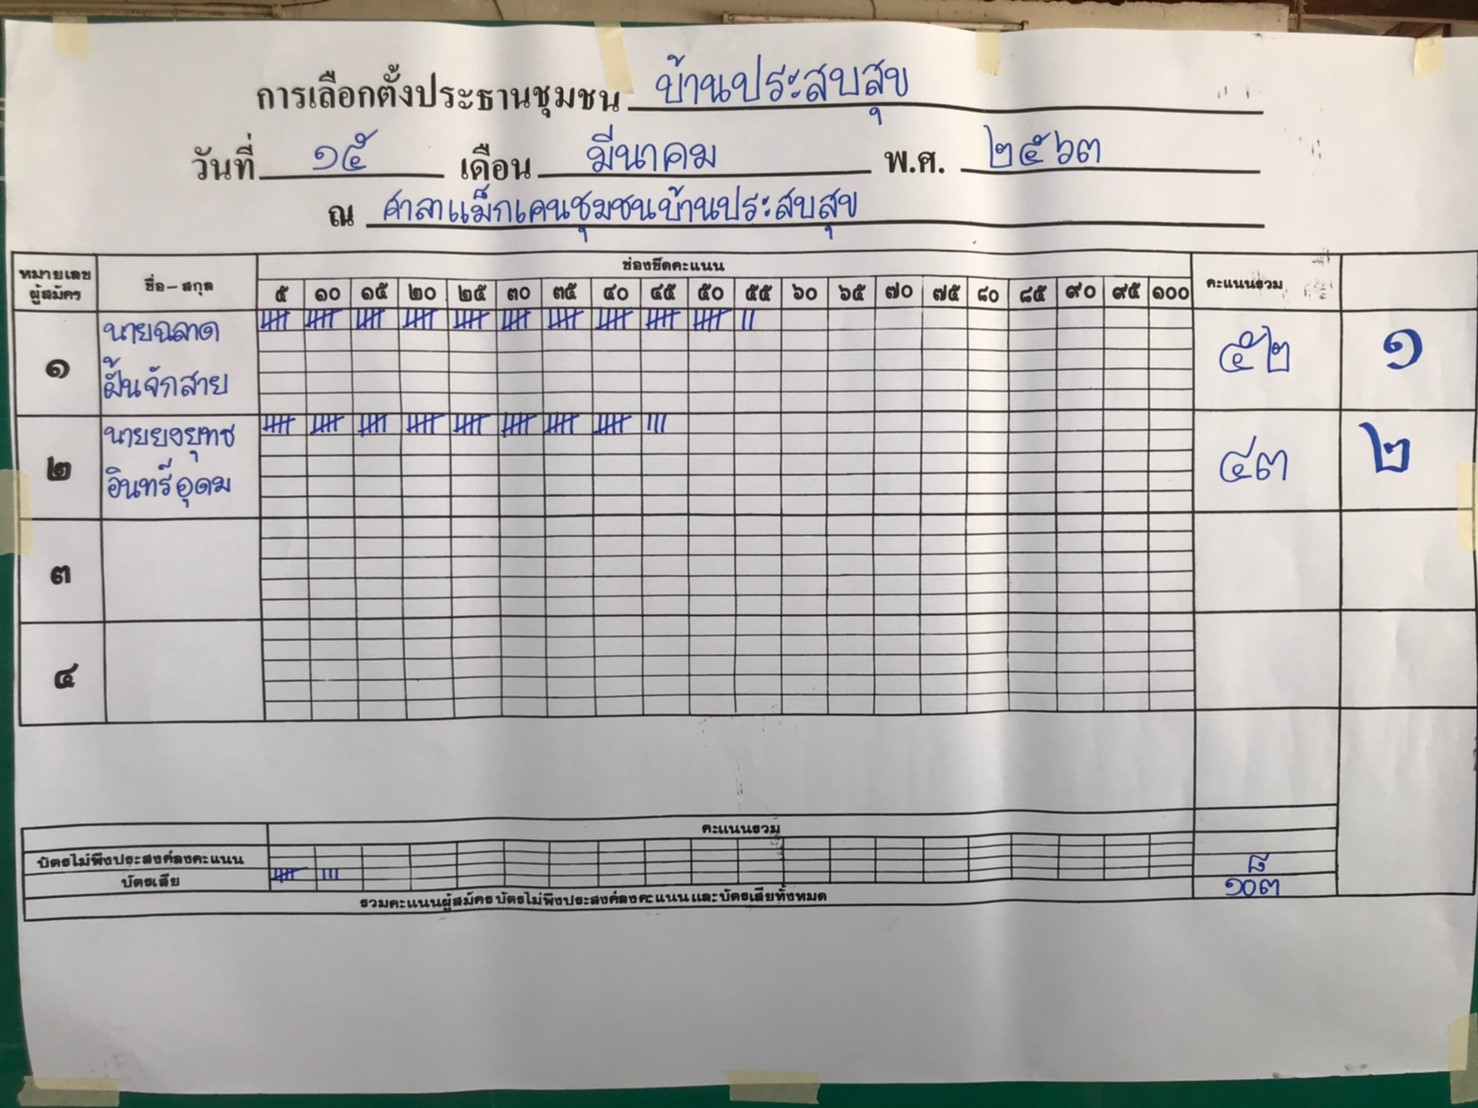 การเลือกตั้งประธานชุมชน บ้านประสบสุข
วันที่ ๑๕ เดือน มีนาคม พ.ศ. ๒๕๖๓
ณ ศาลาแม็กเคนชุมชนบ้านประสบสุข
หมายเลขผู้สมัคร ชื่อ-สกุล ช่องขีดคะแนน คะแนนรวม
๕ ๑๐ ๑๕ ๒๐ ๒๕ ๓๐ ๓๕ ๔๐ ๔๕ ๕๐ ๕๕ ๖๐ ๖๕ ๗๐ ๗๕ ๘๐ ๘๕ ๙๐ ๙๕ ๑๐๐
๑ นายฉลาด ๕๒ ๑
ฝั้นจักสาย
๒ นายยงยุทธ ๔๓ ๒
อินทรีอุดม
๓
๔
คะแนนรวม
บัตรไม่พึงประสงค์ลงคะแนน
บัตรเสีย ๘
รวมคะแนนผู้สมัคร บัตรไม่พึงประสงค์ลงคะแนน และบัตรเสียทั้งหมด ๑๐๓